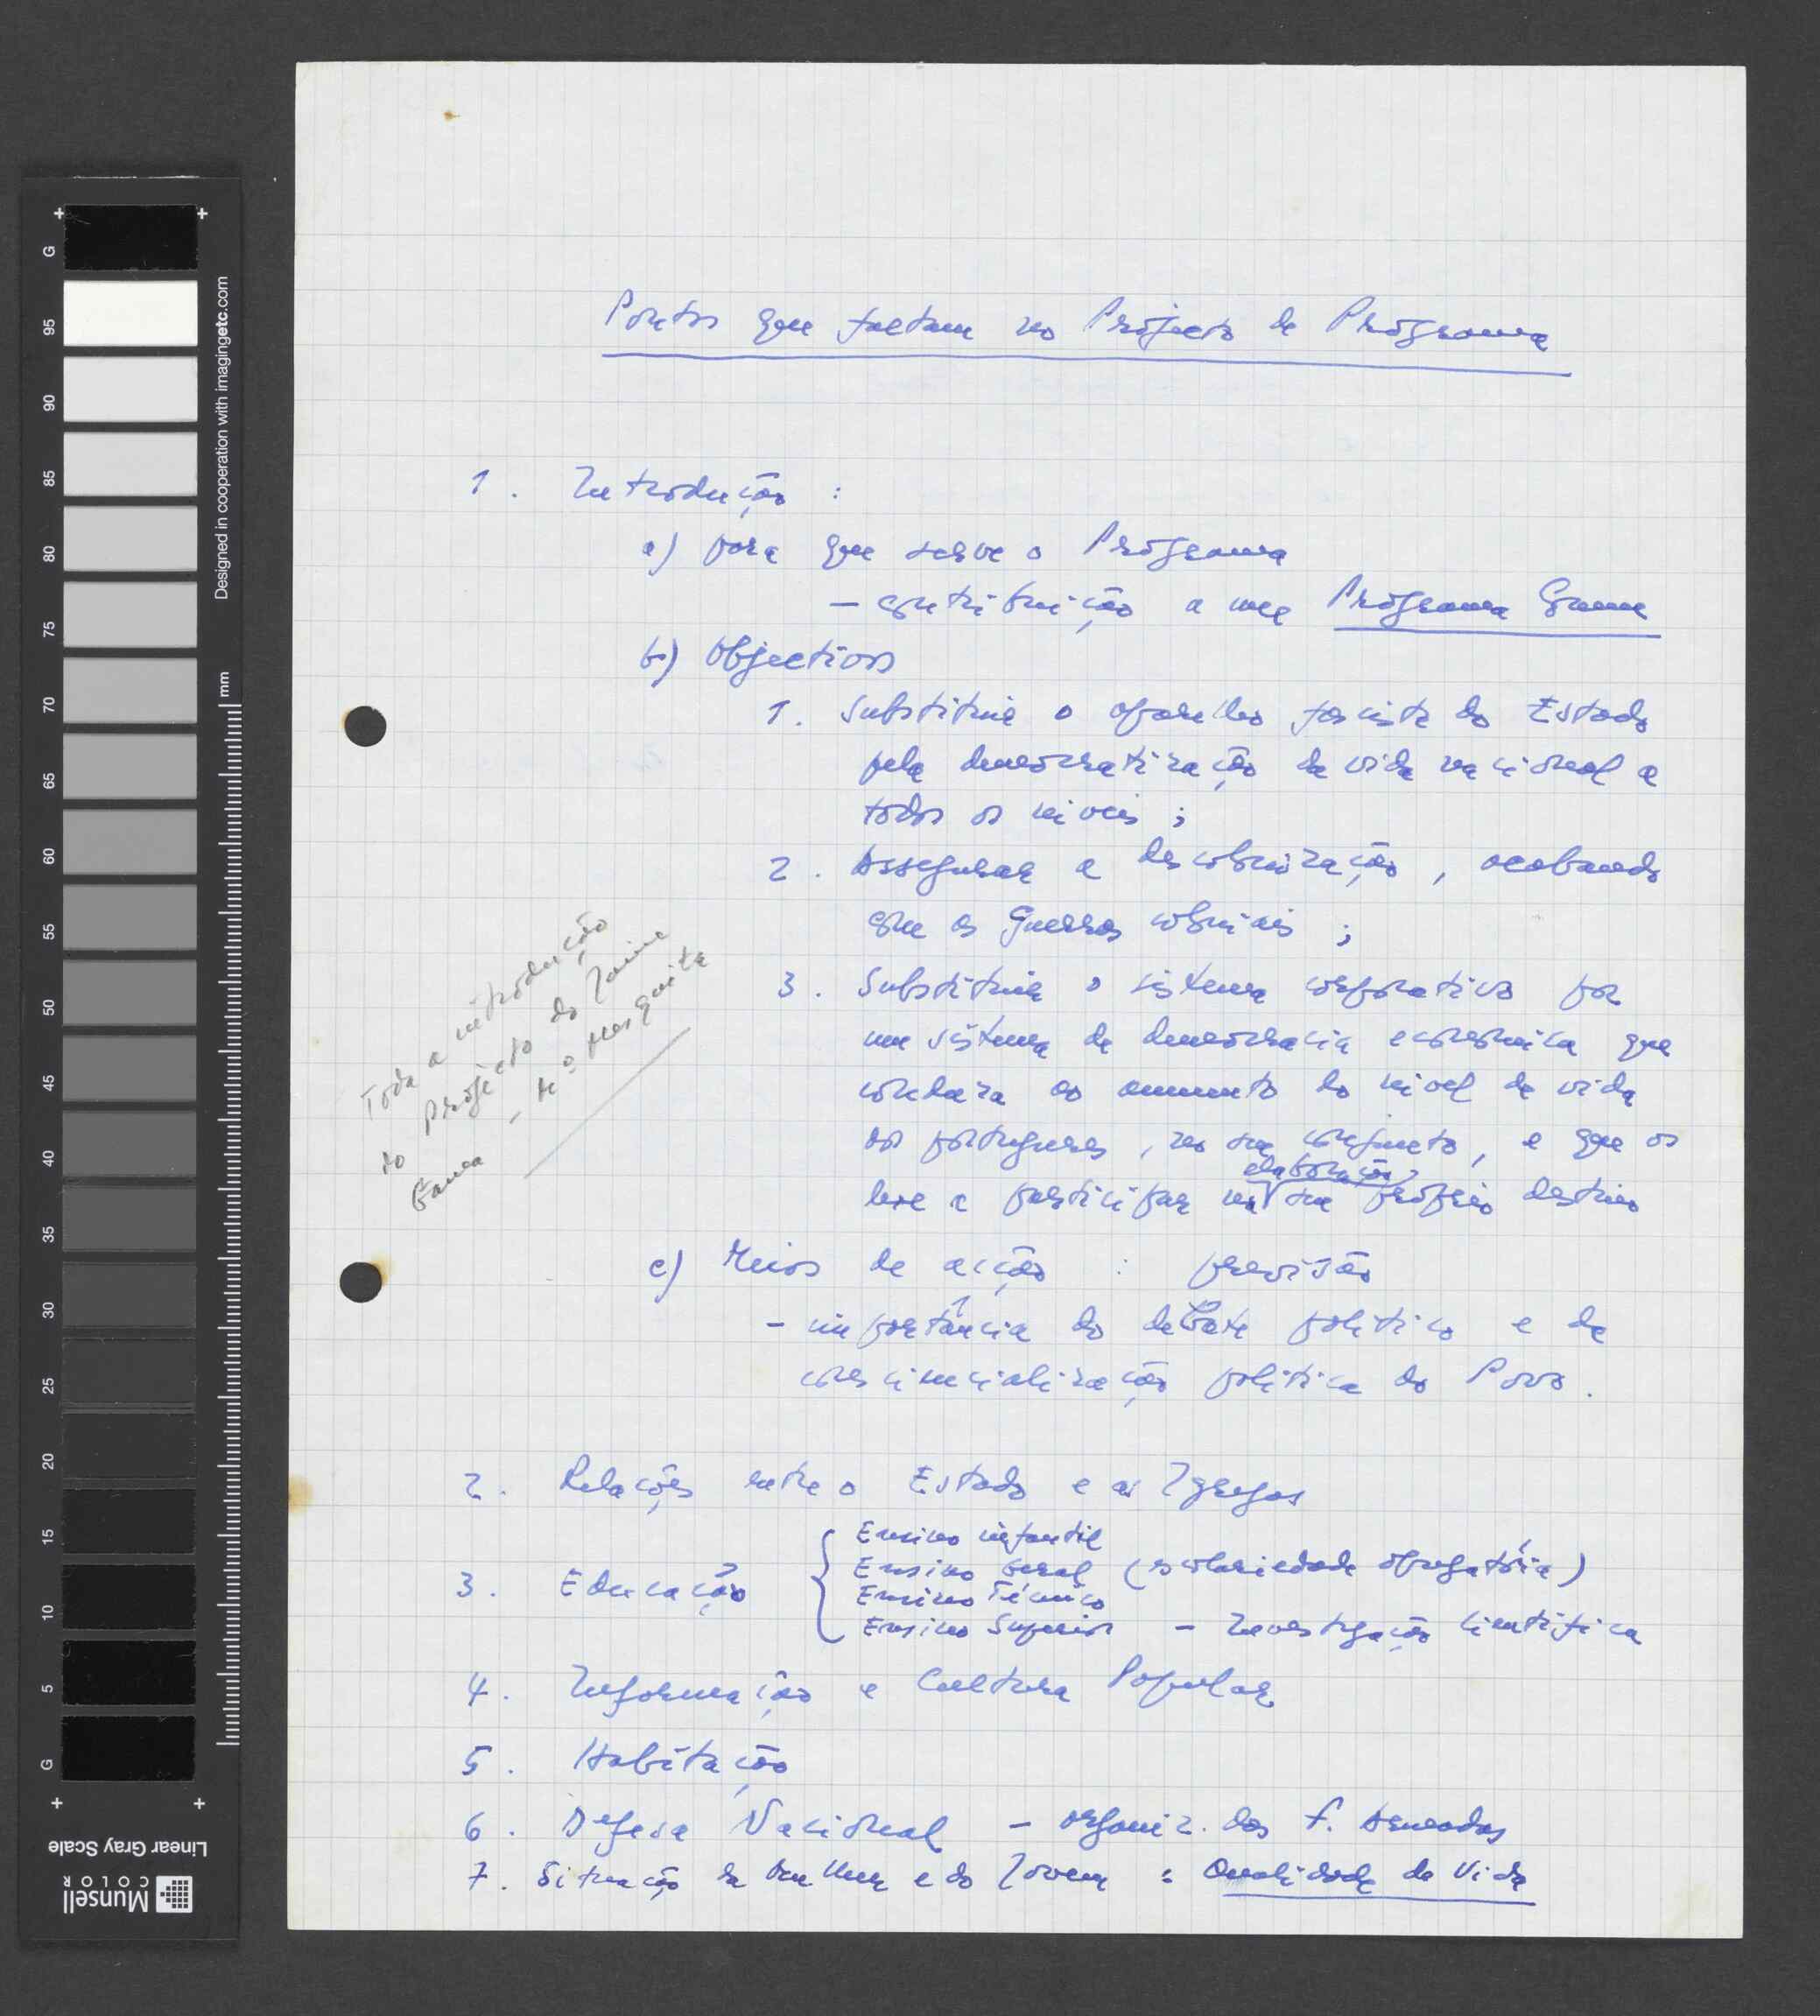 Pontos que faltam no Projecto de Programa
1. Introdução :
a) para que serve o Programa
– contribuição a um Programa Comum
b) Objectivos
1. Substituir o aparelho fascista do Estado
pela democratização da vida nacional a
todos os níveis ;
2. Assegurar a descolonização, acabando
com as Guerras coloniais ;
3. Substituir o sistema corporativo por
um sistema de democracia económica que
conduza ao aumento do nível de vida
dos portugueses, no seu conjunto, e que os
elaboração
leve a participar na do seu próprio destino
c) Meios de acção : previsão
– importância do debate político e da
consciencialização política do Povo.
Toda a introdução
do projecto do Jaime
Gama
– Mesquita
2. Relações entre o Estado e as Igrejas
3. Educação
Ensino infantil
Ensino Geral (escolariedade obrigatória)
Ensino Técnico
Ensino Superior – Investigação Científica
4. Informação e Cultura Popular
5. Habitação
6. Defesa Nacional – organiz. das F. Armadas
7. Situação da Mulher e do Jovem : Qualidade da Vida
G
95
90
85
80
75
70
65
60
55
50
45
40
35
30
25
20
15
10
5
G
mm
Designed in cooperation with imagingetc.com
Linear Gray Scale
Munsell
COLOR